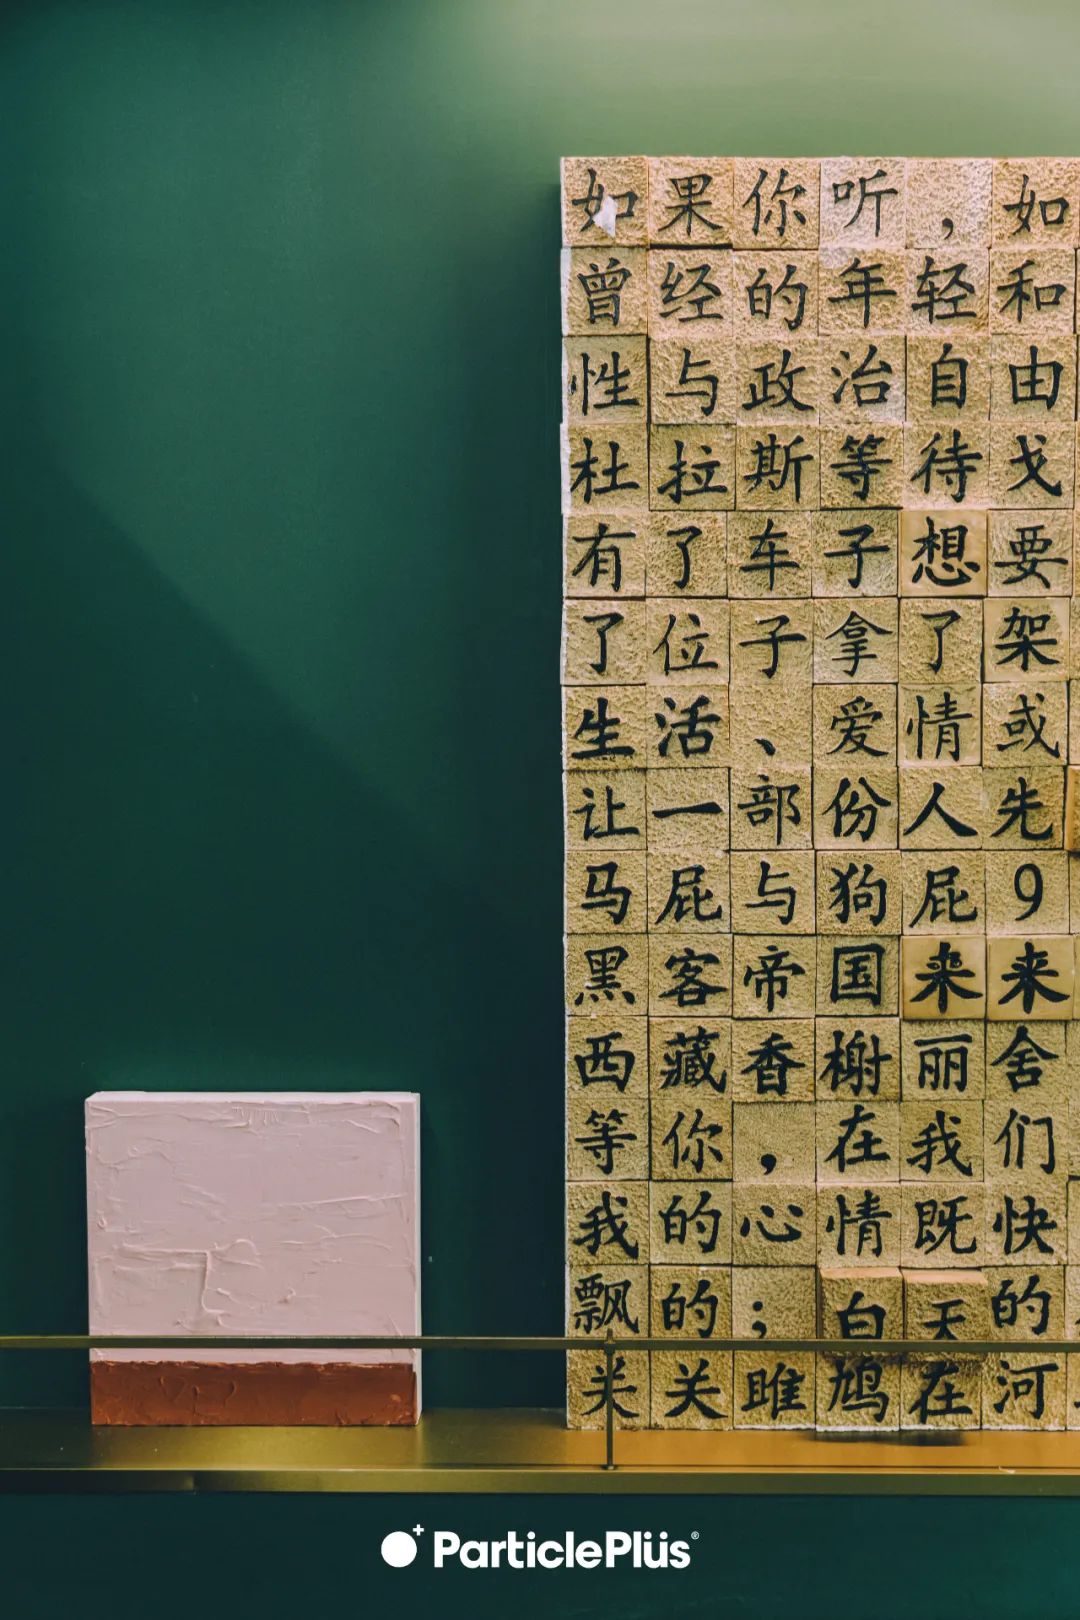 如果你听，如
曾经的年轻和
性与政治自由
杜拉斯等待戈
有了车子想要
了位子拿了架
生活、爱情或
让一部份人先
马屁与狗屁9
黑客帝国来来
西藏香榭丽舍
等你，在我们
我的心情既快
飘的；白天的
关关雎鸠在河
ParticlePlüs®